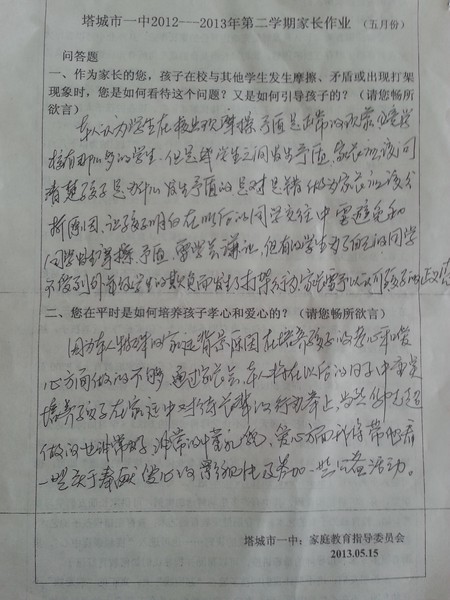 塔城市一中2012---2013年第二学期家长作业 （五月份）
问答题
一、作为家长的您，孩子在校与其他学生发生摩擦、矛盾或出现打架
现象时，您是如何看待这个问题？又是如何引导孩子的？（请您畅所
欲言）
本人认为学生在校出现摩擦矛盾是正常的现象
的学生，但是学生之间发生矛盾，家长应该问
清楚孩子是为什么发生矛盾的是对是错 作为家长应该分
析原因，让孩子明白在以后的同学交往中要避免和
同学发生摩擦、矛盾，要学会谦让，但有的学生为了自己的同学
不受到外班级学生的欺负而发生了打架行为，家长要予以认可孩子的
二、您在平时是如何培养孩子孝心和爱心的？（请您畅所欲言）
因为本人特殊的家庭背景原因在培养孩子的孝心和爱
心方面做的不够，通过家长会，本人将在以后的日子中注重
培养孩子在家庭中对待长辈的行为举止，
做的也非常好，非常的有礼貌，爱心方面我将带他看
一些关于奉献爱心的 及参加一些公益活动。
塔城市一中：家庭教育指导委员会
2013.05.15